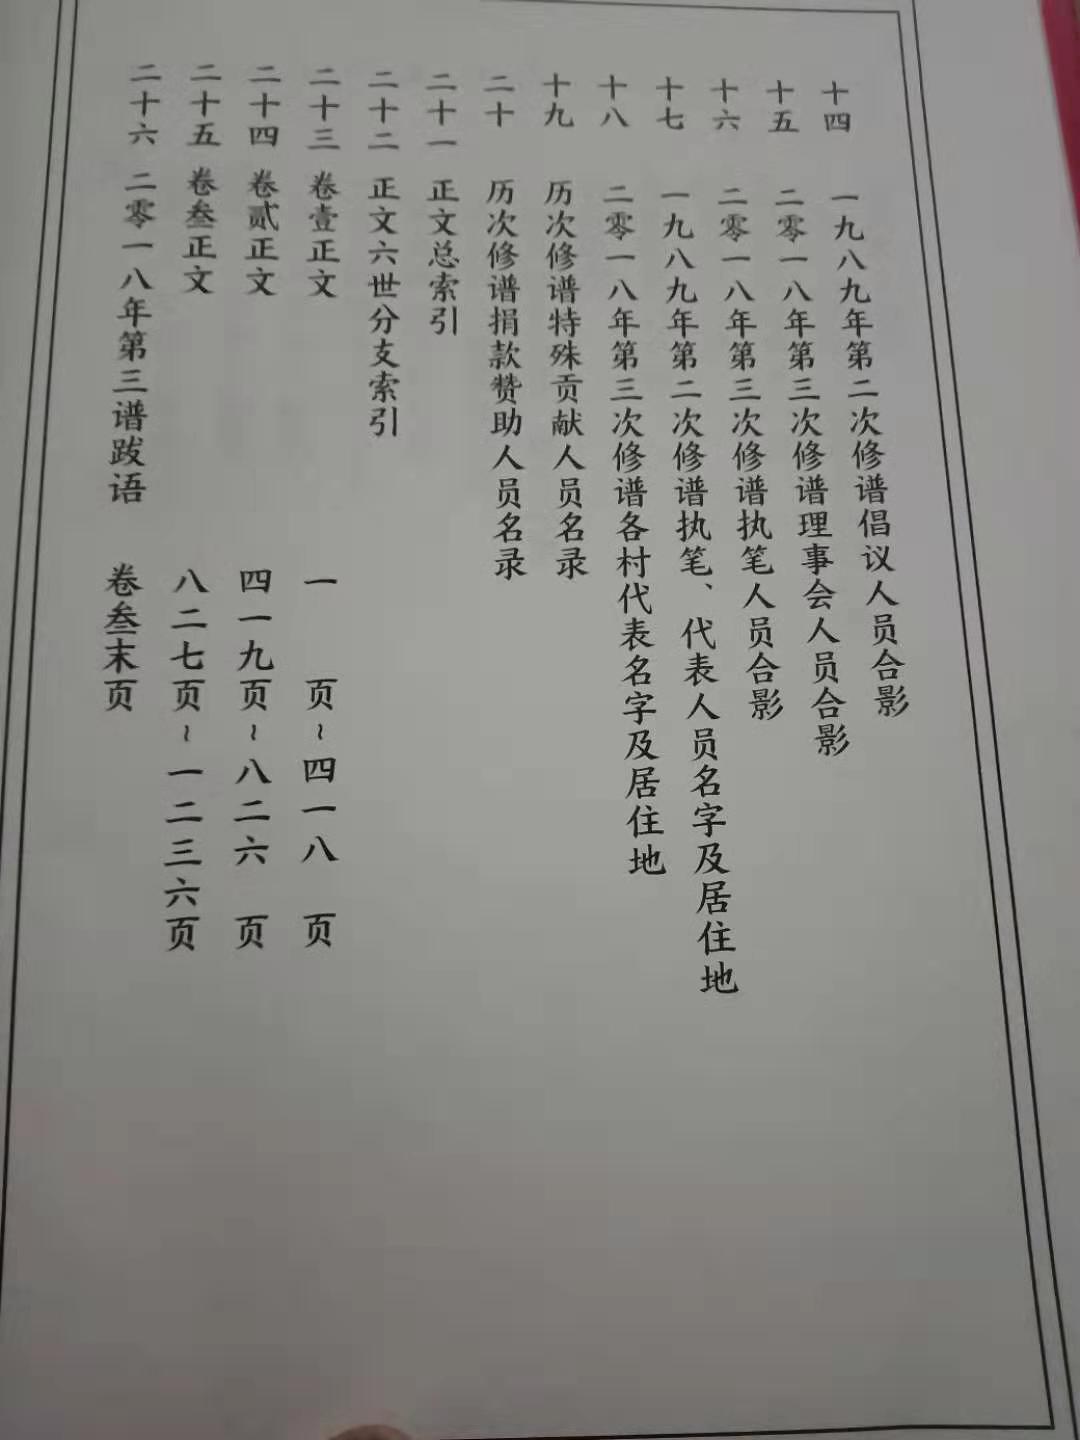 十四 一九八九年第二次修谱倡议人员合影
十五 二零一八年第三次修谱理事会人员合影
十六 二零一八年第三次修谱执笔人员合影
十七 一九八九年第二次修谱执笔、代表人员名字及居住地
十八 二零一八年第三次修谱各村代表名字及居住地
十九 历次修谱特殊贡献人员名录
二十 历次修谱捐款赞助人员名录
二十一 正文总索引
二十二 正文六世分支索引
二十三 卷壹正文 一 页~四一八 页
二十四 卷贰正文 四一九页~八二六 页
二十五 卷叁正文 八二七页~一二三六页
二十六 二零一八年第三谱跋语 卷叁末页